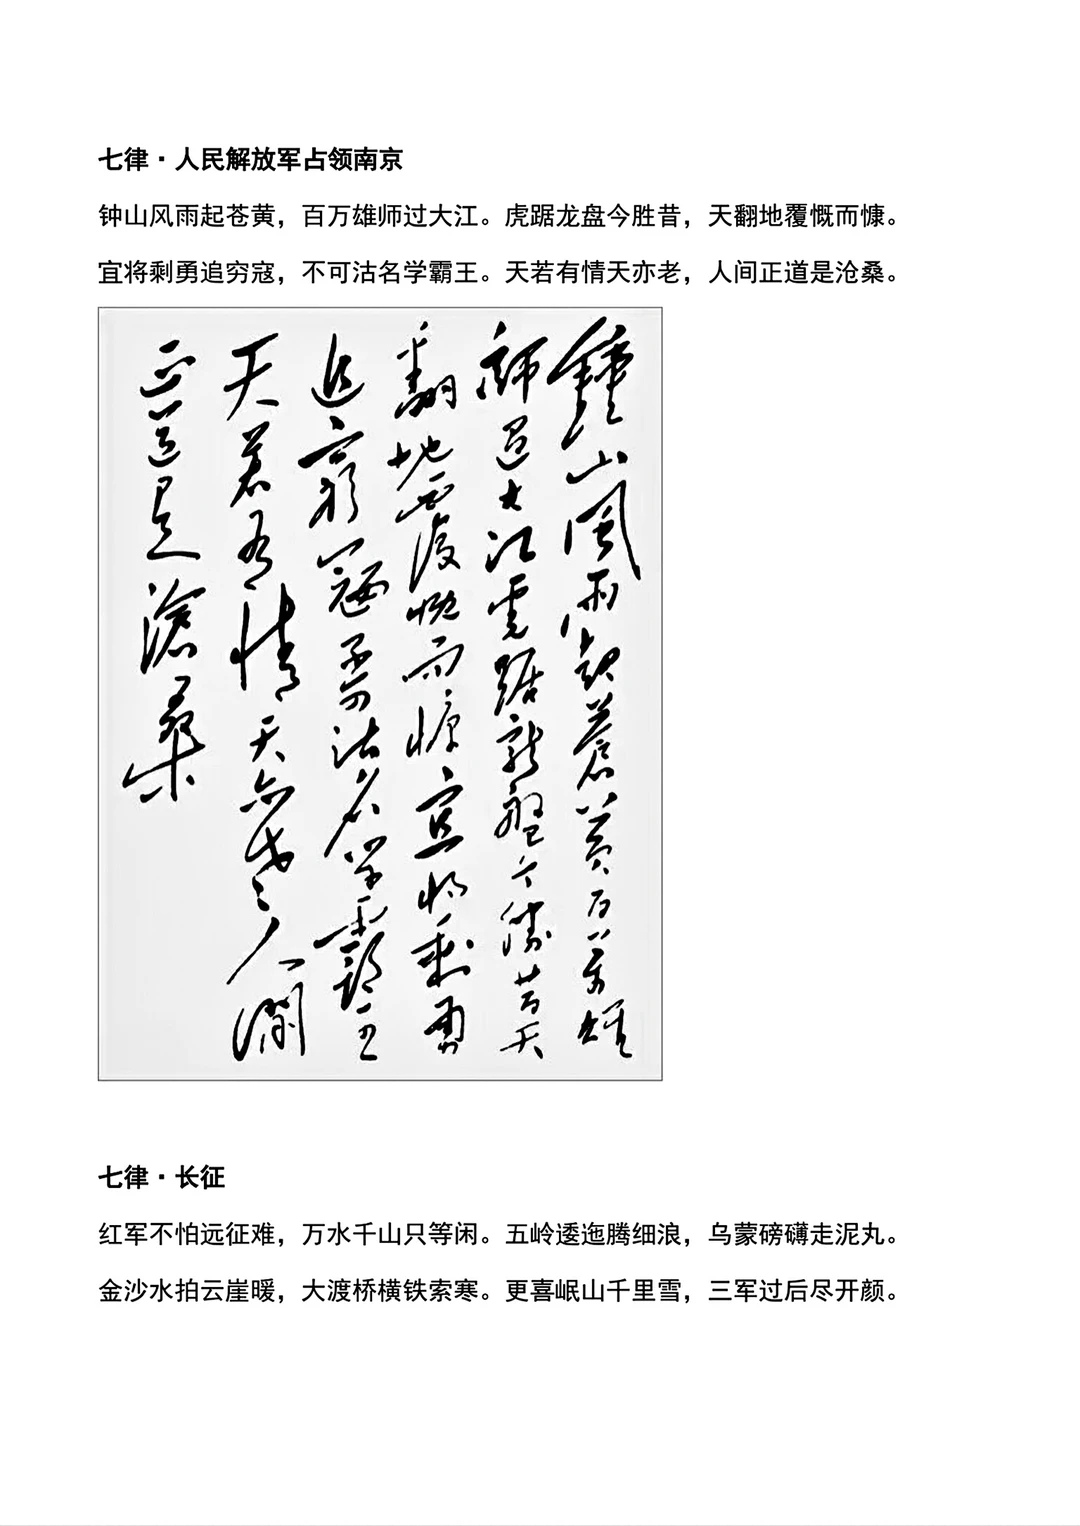 七律·人民解放军占领南京
钟山风雨起苍黄，百万雄师过大江。虎踞龙盘今胜昔，天翻地覆慨而慷。
宜将剩勇追穷寇，不可沽名学霸王。天若有情天亦老，人间正道是沧桑。
鍾山風雨起蒼黃百萬雄
師過大江虎踞龍盤今勝昔天
翻地覆慨而慷宜将剩勇
追窮寇不可沽名学霸王
天若有情天亦老人间
正道是滄桑
七律·长征
红军不怕远征难，万水千山只等闲。五岭逶迤腾细浪，乌蒙磅礴走泥丸。
金沙水拍云崖暖，大渡桥横铁索寒。更喜岷山千里雪，三军过后尽开颜。